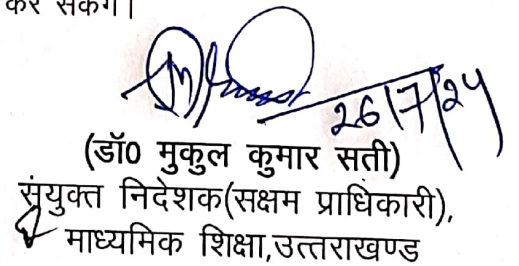 कर सकेंगे।
26/7/24
(डॉ0 मुकुल कुमार सती)
संयुक्त निदेशक(सक्षम प्राधिकारी),
माध्यमिक शिक्षा,उत्तराखण्ड